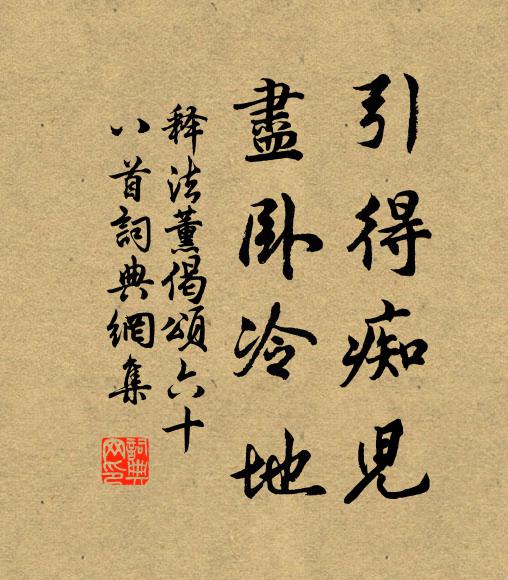 引得痴児
盡卧冷地
释法薰偈頌六十
八首詞典網集
詞典
网印